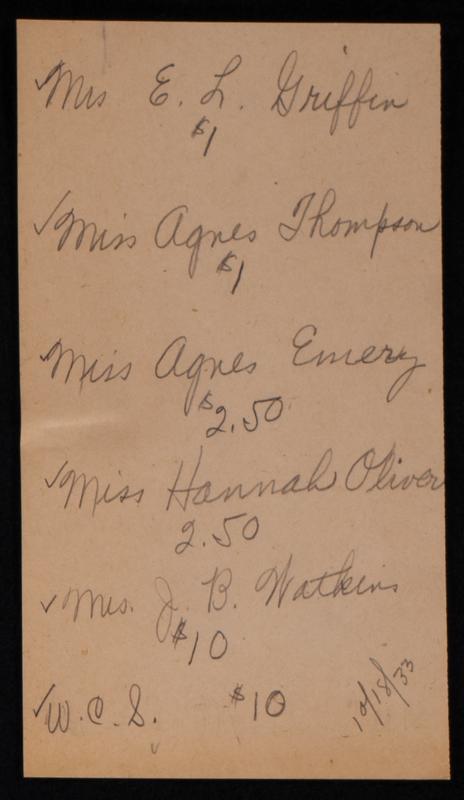 ✓Mrs E. L. Griffin
$1
✓Miss Agnes Thompson
$1
✓Miss Agnes Emery
$2.50
✓Miss Hannah Oliver
2.50
✓Mrs. J. B. Watkins
$10
✓W. C. S. $10
10/18/33